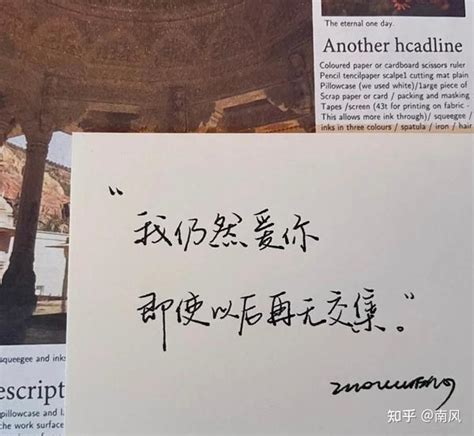 The eternal one day.
Another hcadline
Coloured paper or cardboard scissors ruler
Pencil tencilpaper scalpe1 cutting mat plain
Pillowcase (we used white)/1arge piece of
Scrap paper or card / packing and masking
Tapes /screen (43t for printing on fabric -
This allows more ink through)/ squeegee /
inks in three colours / spatula / iron / hair
“我仍然爱你
即使以后再无交集。”
squeegee and inks
escript
pillowcase and l
the work surface
知乎 @南风